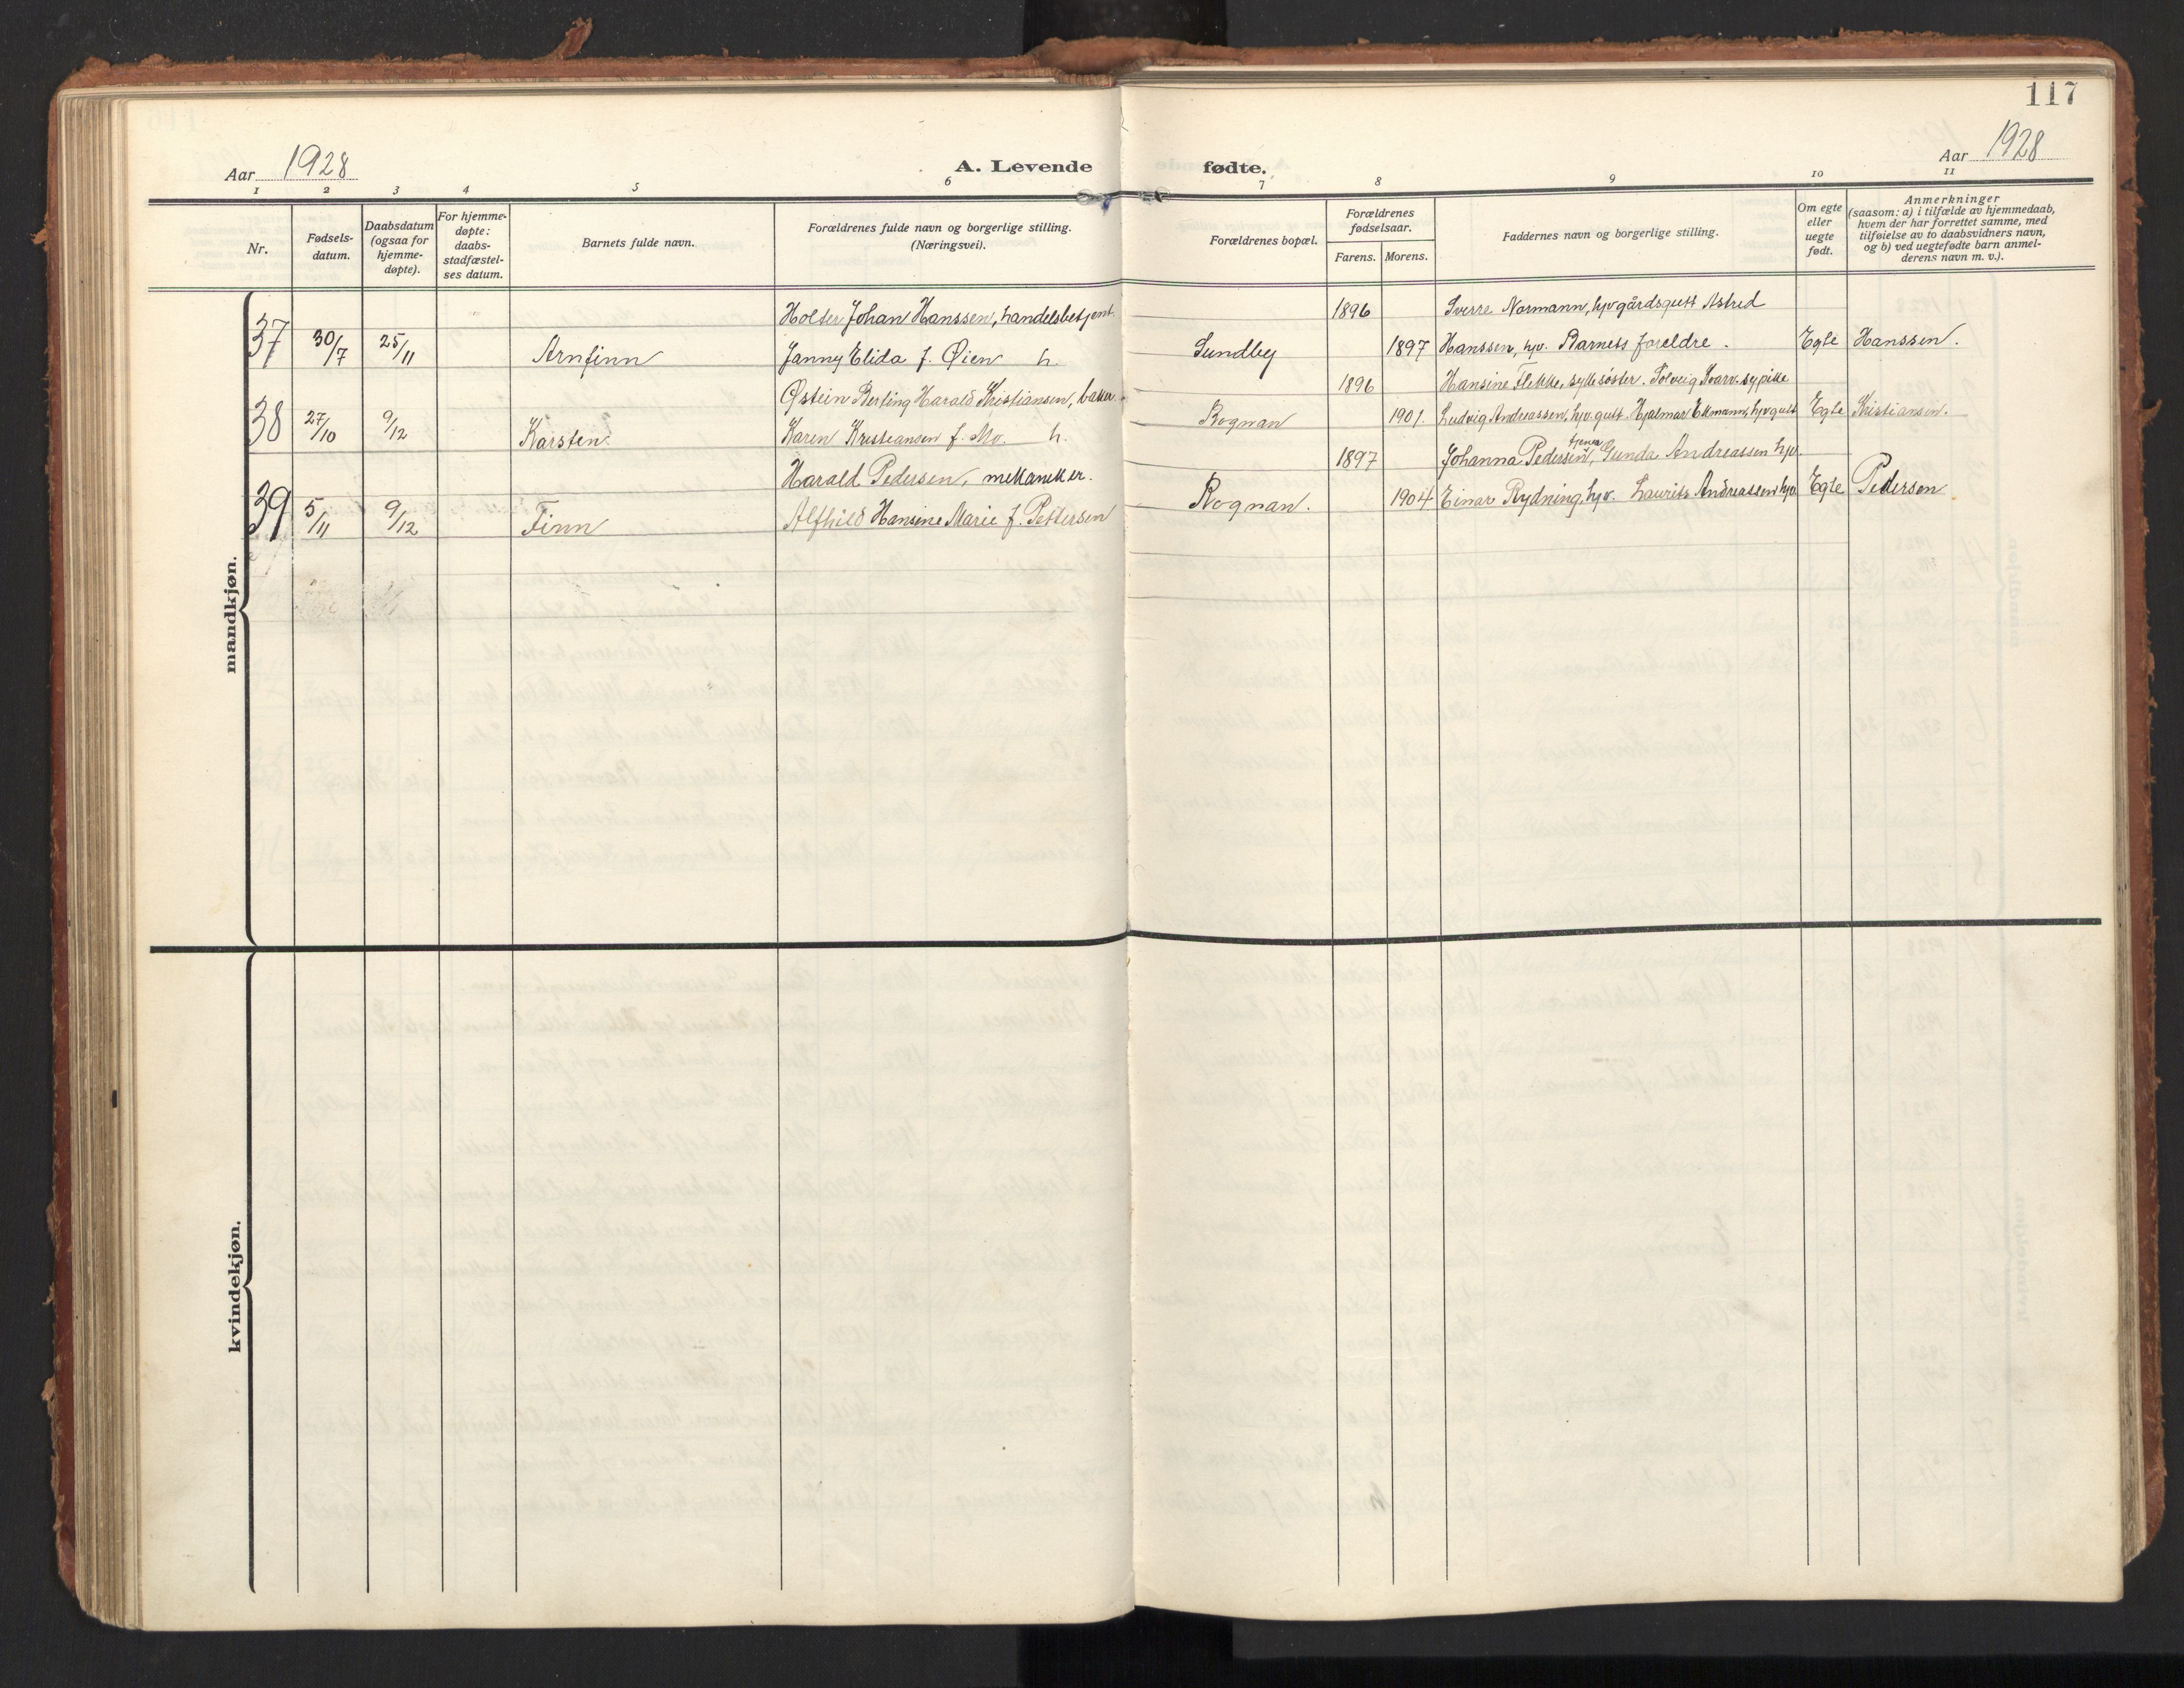 117
Aar 1928 A. Levende fødte. Aar 1928
1 2 3 4 5 6 7 8 9 10 11
Nr.
Fødsels-
datum.
Daabsdatum
(ogsaa for
hjemme-
døpte).
For hjemme-
døpte:
daabs-
stadfæstel-
ses datum.
Barnets fulde navn.
Forældrenes fulde navn og borgerlige stilling.
(Næringsvei).
Forældrenes bopæl.
Forældrenes
fødselsaar.
Farens. Morens.
Faddernes navn og borgerlige stilling.
Om egte
eller
uegte
født.
Anmerkninger
(saasom: a) i tilfælde av hjemmedaab,
hvem der har forrettet samme, med
tilføielse av to daabsvidners navn,
og b) ved uegtefødte barn anmel-
derens navn m. v.).
mandkjøn.
Holter Johan Hanssen, handelsbetjent 1896 Sverre Normann, hjv gårdsgutt Astrid
37 30/7 25/11 Arnfinn Janny Elida f. Øien h. Sundby 1897 Hanssen, hjv. Barnets foreldre. Egte Hanssen.
Østein Berting Harald Kristiansen, baker 1896 Hansine Flekke, sykesøster. Solveig Kvarv. sypike
38 27/10 9/12 Karsten Karen Kristiansen f. Mo. h. Rognan 1901. Ludvig Andreassen, hjv. gutt. Hjalmar Ekmann, hjv gutt Egte Kristiansen.
Harald Pedersen, mekaniker. 1897 Johanna Pedersen, tjener Gunda Andreassen hjv
39 5/11 9/12 Finn Alfhild Hansine Marie f. Pettersen Rognan. 1904 Einar Rydning, hjv. Laurits Andreassen hjv Egte Pedersen
kvindekjøn.